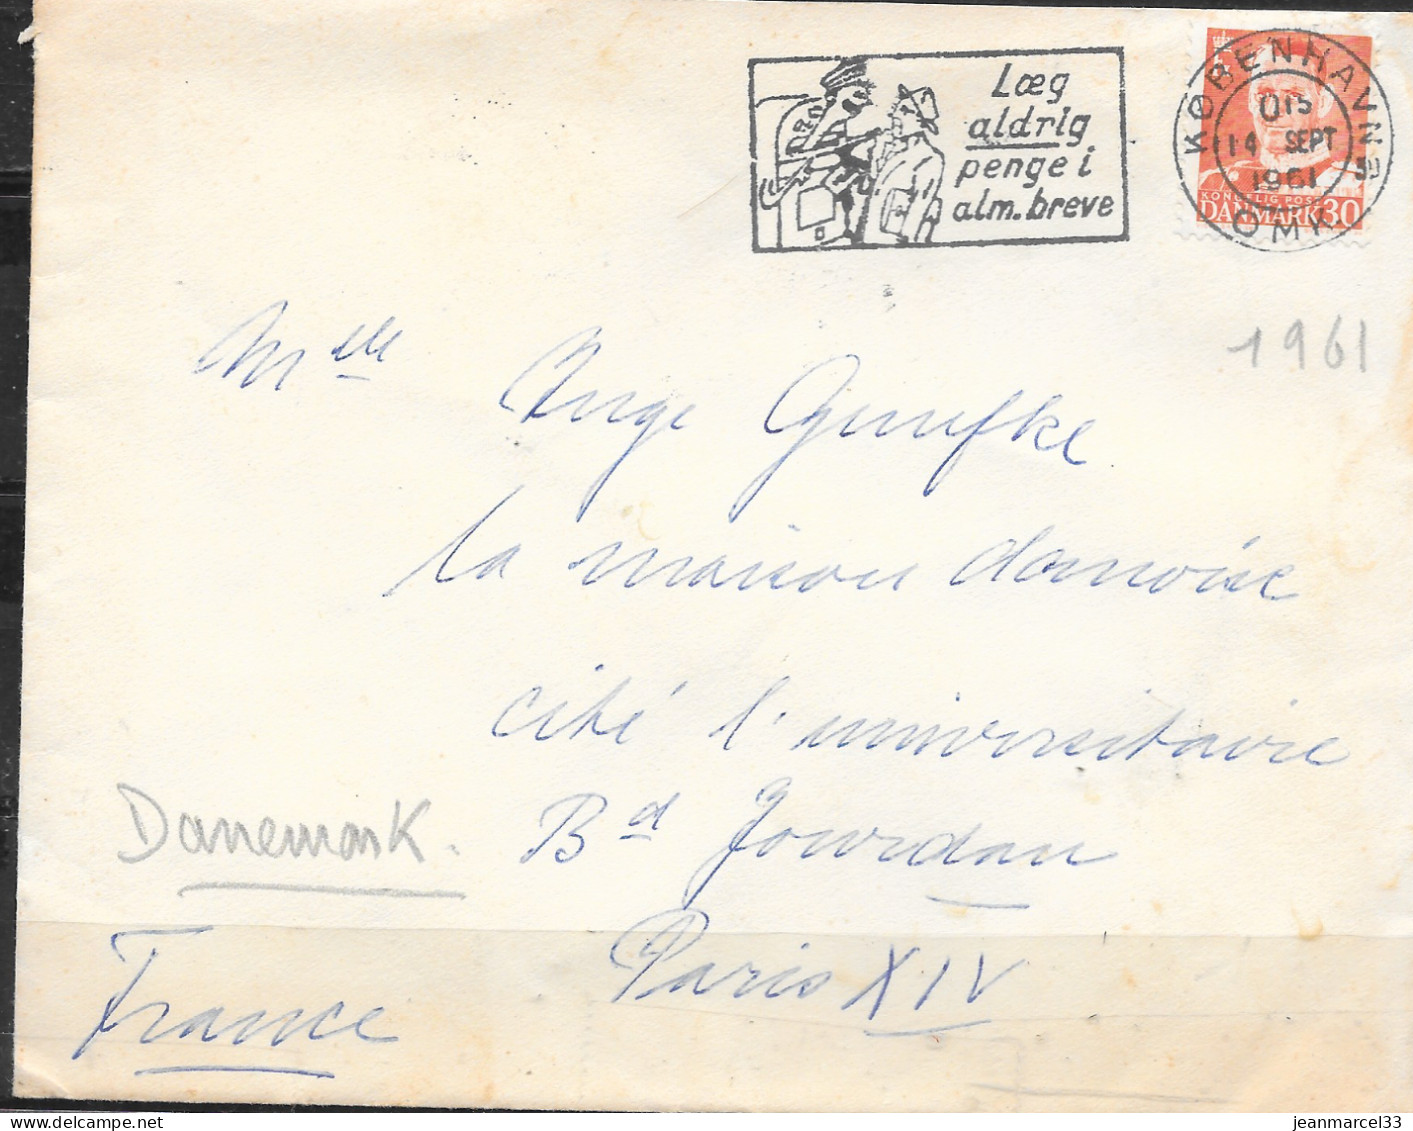 Læg
aldrig
penge i
alm. breve
KØBENHAVN
015
14 SEPT
1961
OMK.
KONGELIG POST
DANMARK 30
1961
Mlle Inge Gunfke
la maison danoise
cité l'universitaire
Danemark.
Bd Jourdan
Paris XIV
France
jeanmarcel33